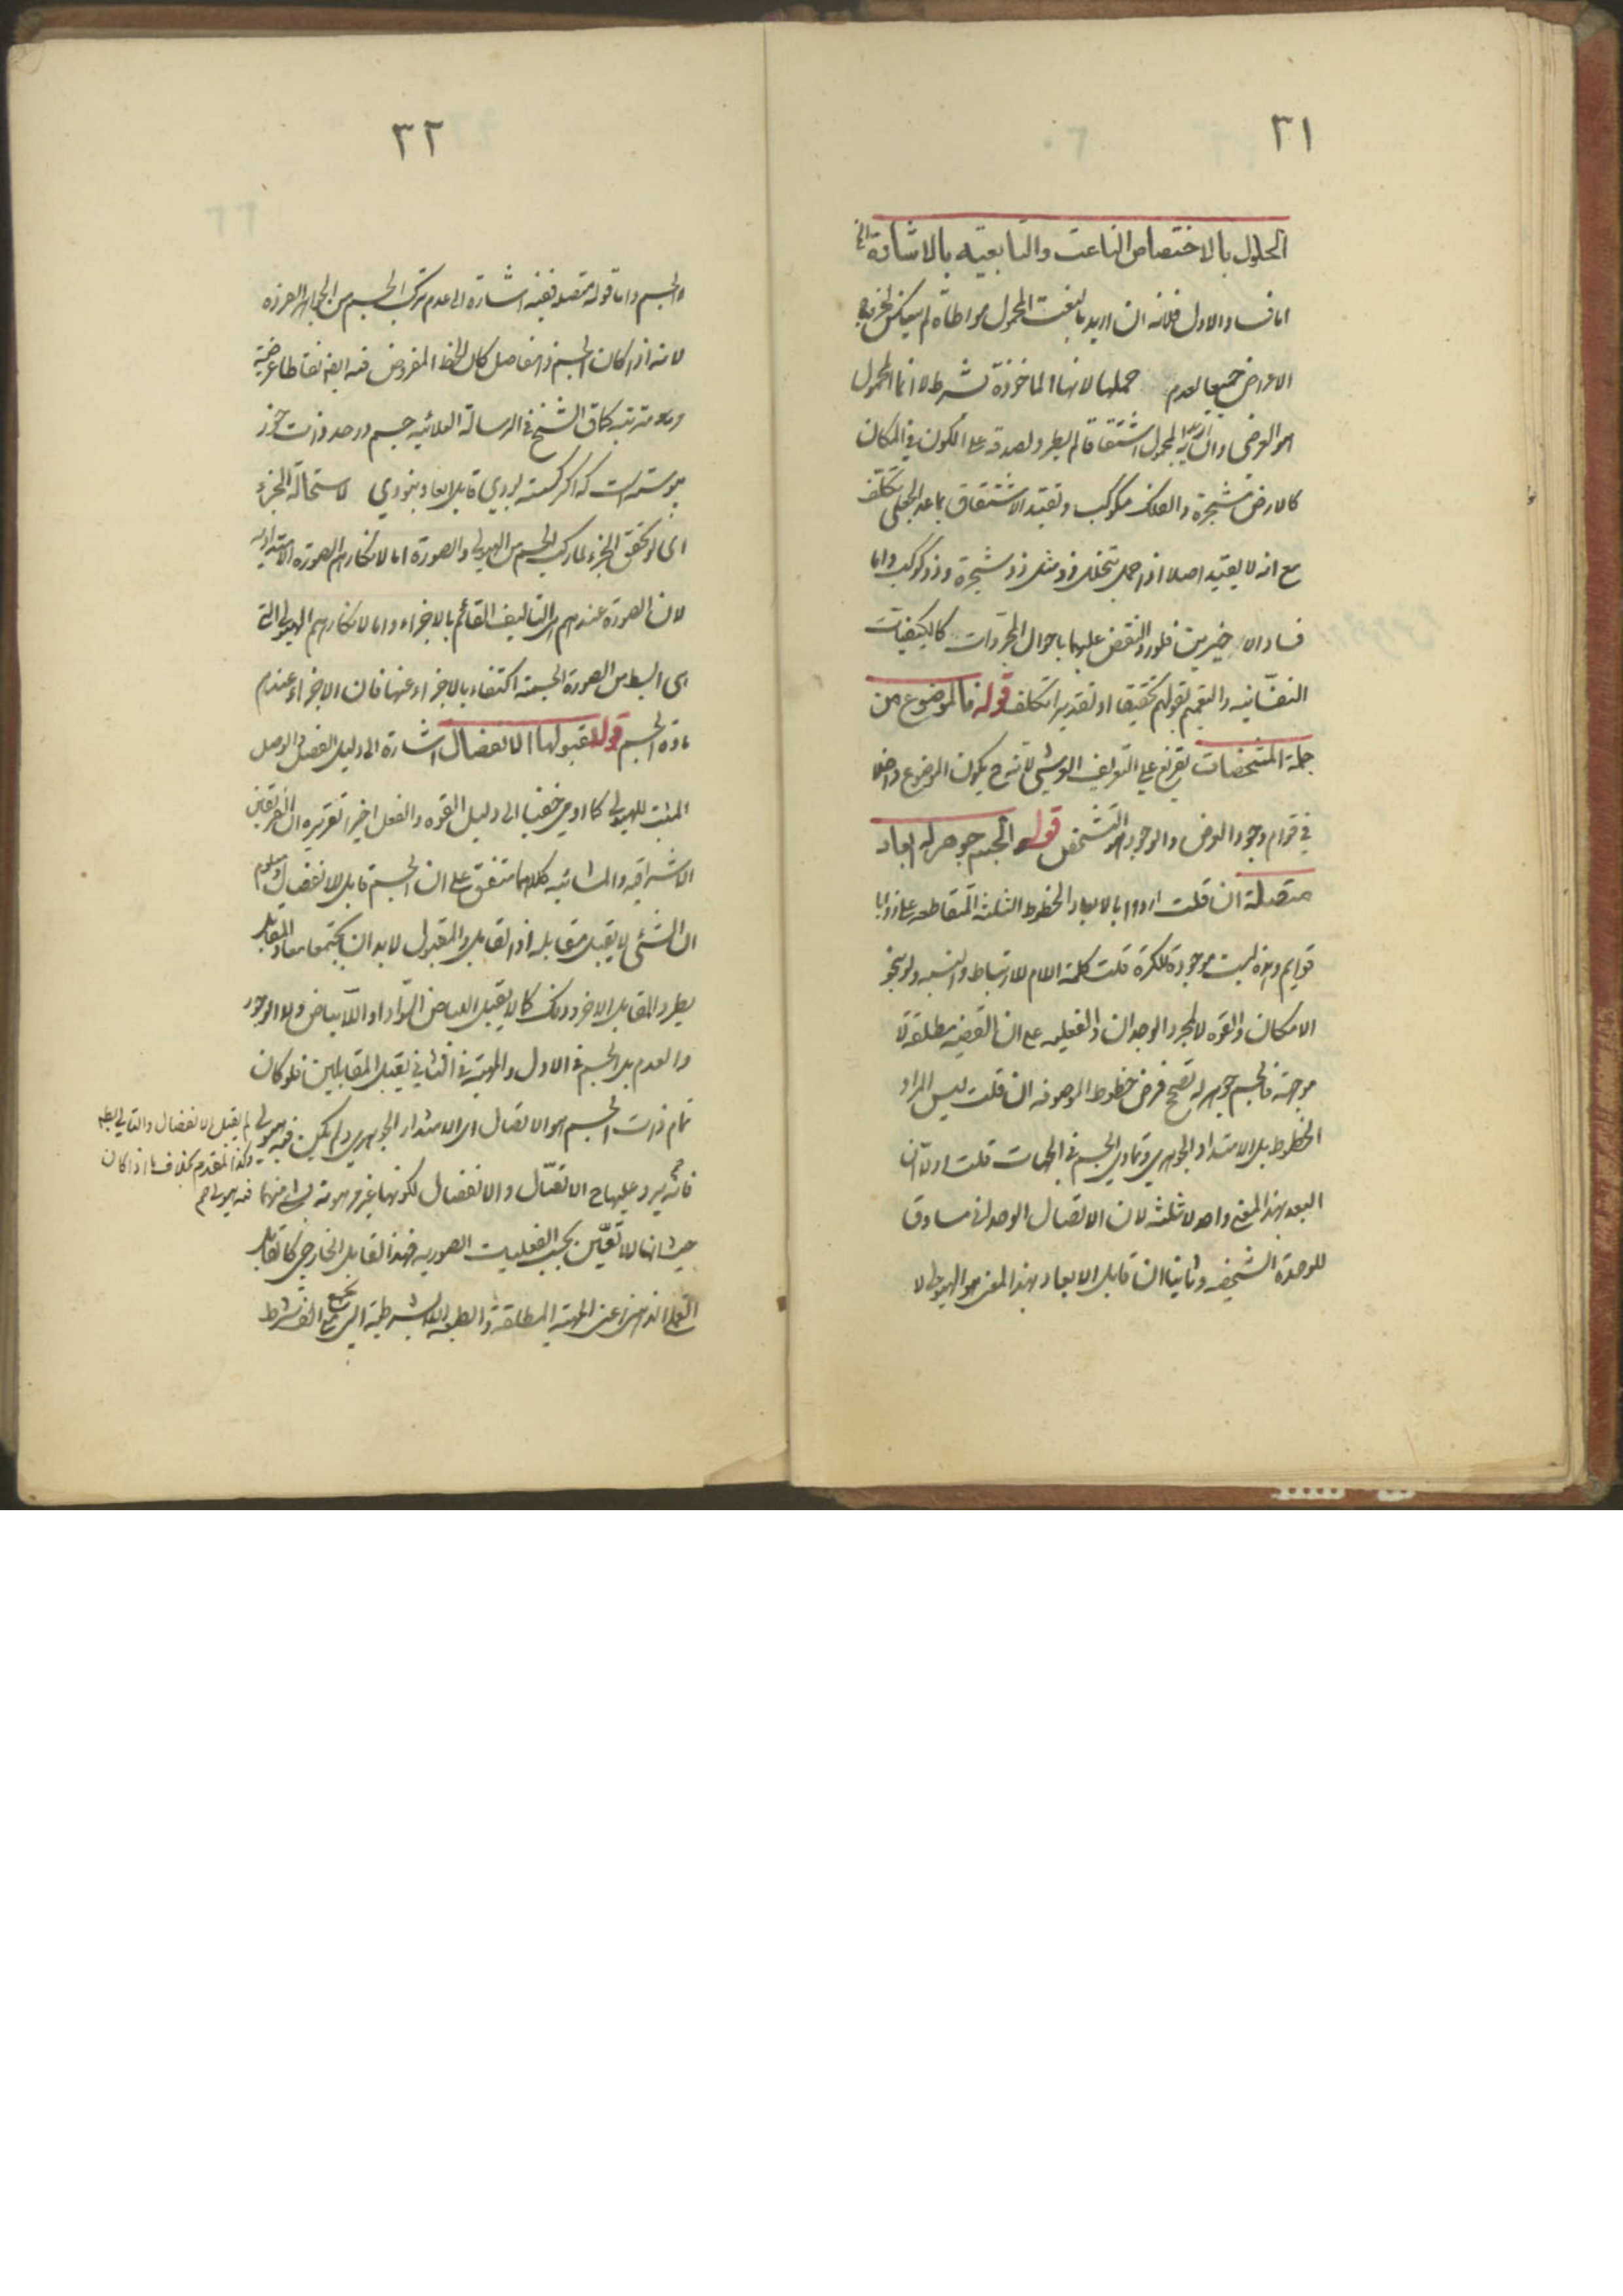 ٣١
الحلول بالاختصاص الناعت والتابعية بالاشارة الخ
اما فساد الاول فلانه ان اريد بالنعت المحمول مواطاة لم ينعكس لخروج
الاعراض جميعا لعدم حملها لانها الماخوذة بشرط لا انما المحمول
هو العرضى وان اريد به المحمول اشتقاقا لم يطرد لصدقه على الكون فى المكان
كالارض مشجرة والفلك مكوكب وتقييد الاشتقاق بما عد الجعلى تكلف
مع انه لا يفيد اصلا اذ احمل بتخلل ذو مثل ذو شجرة وذو كوكب واما
فساد الاخيرين فلورود النقض عليهما باحوال المجردات كالكيفيات
النفسانيه والتعميم بقولهم تحقيقا او تقديرا تكلف قوله فالموضوع من
جملة المشخصات تفريع على التعريف العرشى لانه ح يكون الموضوع داخلا
فى قوام وجود العرض والوجود هو التشخص قوله الجسم جوهر له ابعاد
متصلة ان قلت ارادوا بالابعاد الخطوط الثلثة المتقاطعه على زوايا
قوايم وهذه ليست موجودة للكرة قلت كلمة اللام للارتباط والنسبه ولو بنحو
الامكان والقوه لا لمجرد الوجدان والفعليه مع ان القضيه مطلقة لا
موجهة فالجسم جوهر له تصحح فرض خطوط الموصوفه ان قلت ليس المراد
الخطوط بل الامتداد الجوهرى وتمادى الجسم فى الجهات قلت اولا ان
البعد بهذا المعنى واحد لا ثلثه لان الاتصال الوحدانى مساوق
للوحدة الشخصيه وثانيا ان قابل الابعاد بهذا المعنى هو الهيولى لا
٣٢
والجسم واما قوله متصلة ففيه اشارة الى عدم تركب الجسم من الجواهر الفردة
لانه اذا كان الجسم ذا مفاصل كان الخط المفروض فيه ايضا نقاطا عرضية
كما قال الشيخ فى الرسالة العلائيه جسم در حد ذات خود
پيوسته است كه اكر كسسته بودى قابل ابعاد نبودى لاستحالة الجزء
اى لو تحقق الجزء لما ركب الجسم من الهيولى والصورة اما لانكارهم الصورة الامتداديه
لان الصورة عندهم التاليف القائم بالاجزاء واما لانكارهم الهيولى التى
هى ابسط من الصورة الجسمية اكتفاء بالاجزاء عنها فان الاجزاء عندهم
مادة الجسم قوله لقبولها الانفصال اشارة الى دليل الفصل والوصل
المثبت للهيولى كما اومى خفيا الى دليل القوه والفعل اخيرا تقريره ان الفريقين
الاشراقيه والمشائيه كلاهما متفق على ان الجسم قابل للانفصال ومعلوم
ان الشئ لا يقبل مقابله اذ القابل والمقبول لابد ان يجتمعا معا والمقابل
يطرد المقابل الاخر وذلك كما لا يقبل البياض السواد او اللابياض ولا الوجود
والعدم بل الجسم فى الاول والمهية فى الثانى يقبل المقابلين فلو كان
تمام ذات الجسم هو الاتصال اى الامتداد الجوهرى ولم يكن فيه هيولى لم يقبل الانفصال والتالى بط
وكذا المقدم بخلاف ما اذا كان
فيه هيولى
فانه يرد عليها ح الاتصال والانفصال لكونها غير مرهونة بشئ منهما
حيث انها اللاتعين بحسب الفعليات الصوريه فهذا القابل الخارجى كالقابل
العقلى الذهنى اعنى المهية المطلقة والطبيعة اللابشرطية التى تجتمع مع الف شرط